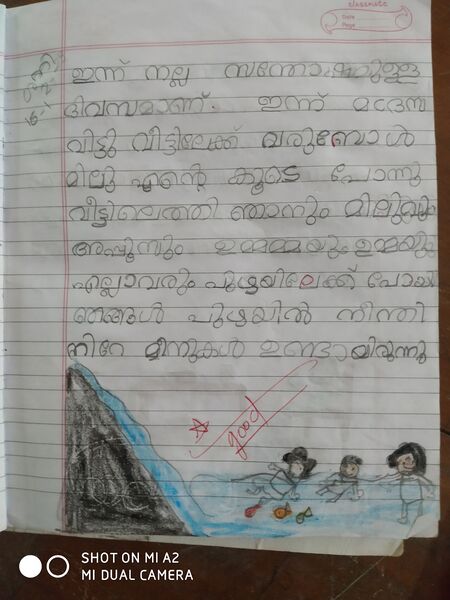 classmate
Date
Page
ഇന്ന് നല്ല സന്തോഷമുള്ള
ദിവസമാണ്. ഇന്ന് മദ്രസ
വിട്ടു വീട്ടിലേക്ക് വരുമ്പോൾ
മിലു എന്റെ കൂടെ പോന്നു
വീട്ടിലെത്തി ഞാനും മിലുവും
ഉമ്മമ്മയും ഉമ്മയും
എല്ലാവരും പുഴയിലേക്ക് പോയി
ഞങ്ങൾ പുഴയിൽ നീന്തി
നിറേ മീനുകൾ ഉണ്ടായിരുന്നു
good
SHOT ON MI A2
MI DUAL CAMERA